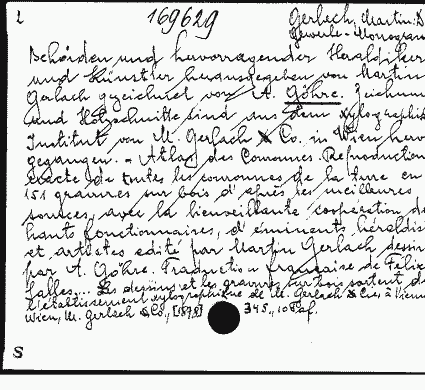 2 169629 Gerlach, Martin: D
Gewerbe-Monogram
Behörden und hervorragender Heraldiker
und Künstler herausgegeben von Martin
Gerlach gezeichnet von A. Göhre. Zeichnun
und Holzschnitte sind aus dem xylographis
Institut von M. Gerlach & Co. in Wien herv
gegangen. - Atlas des Couronnes. Reproduction
exacte de toutes les couronnes de la terre en
151 gravures sur bois d'après les meilleures
sources, avec la bienveillante coopération de
hauts fonctionnaires, d'éminents héraldis
et artistes édité par Martin Gerlach dessin
par A. Göhre. Traduction française de Félix
Salles... Les dessins et les gravures sur bois sortent de
l'établissement xylographique de M. Gerlach & Cie, à Vienn
Wien, M. Gerlach & Co., [1898] 345., 10 Taf.
S